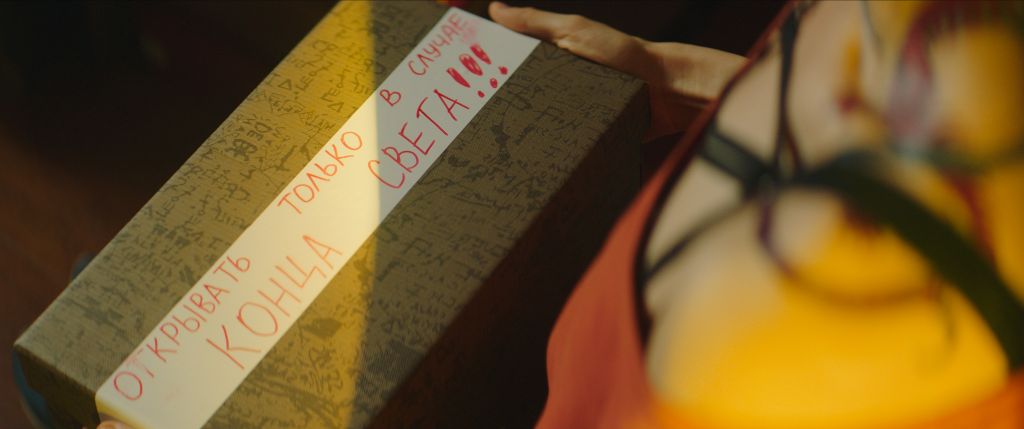 ОТКРЫВАТЬ ТОЛЬКО В СЛУЧАЕ
КОНЦА СВЕТА!!!